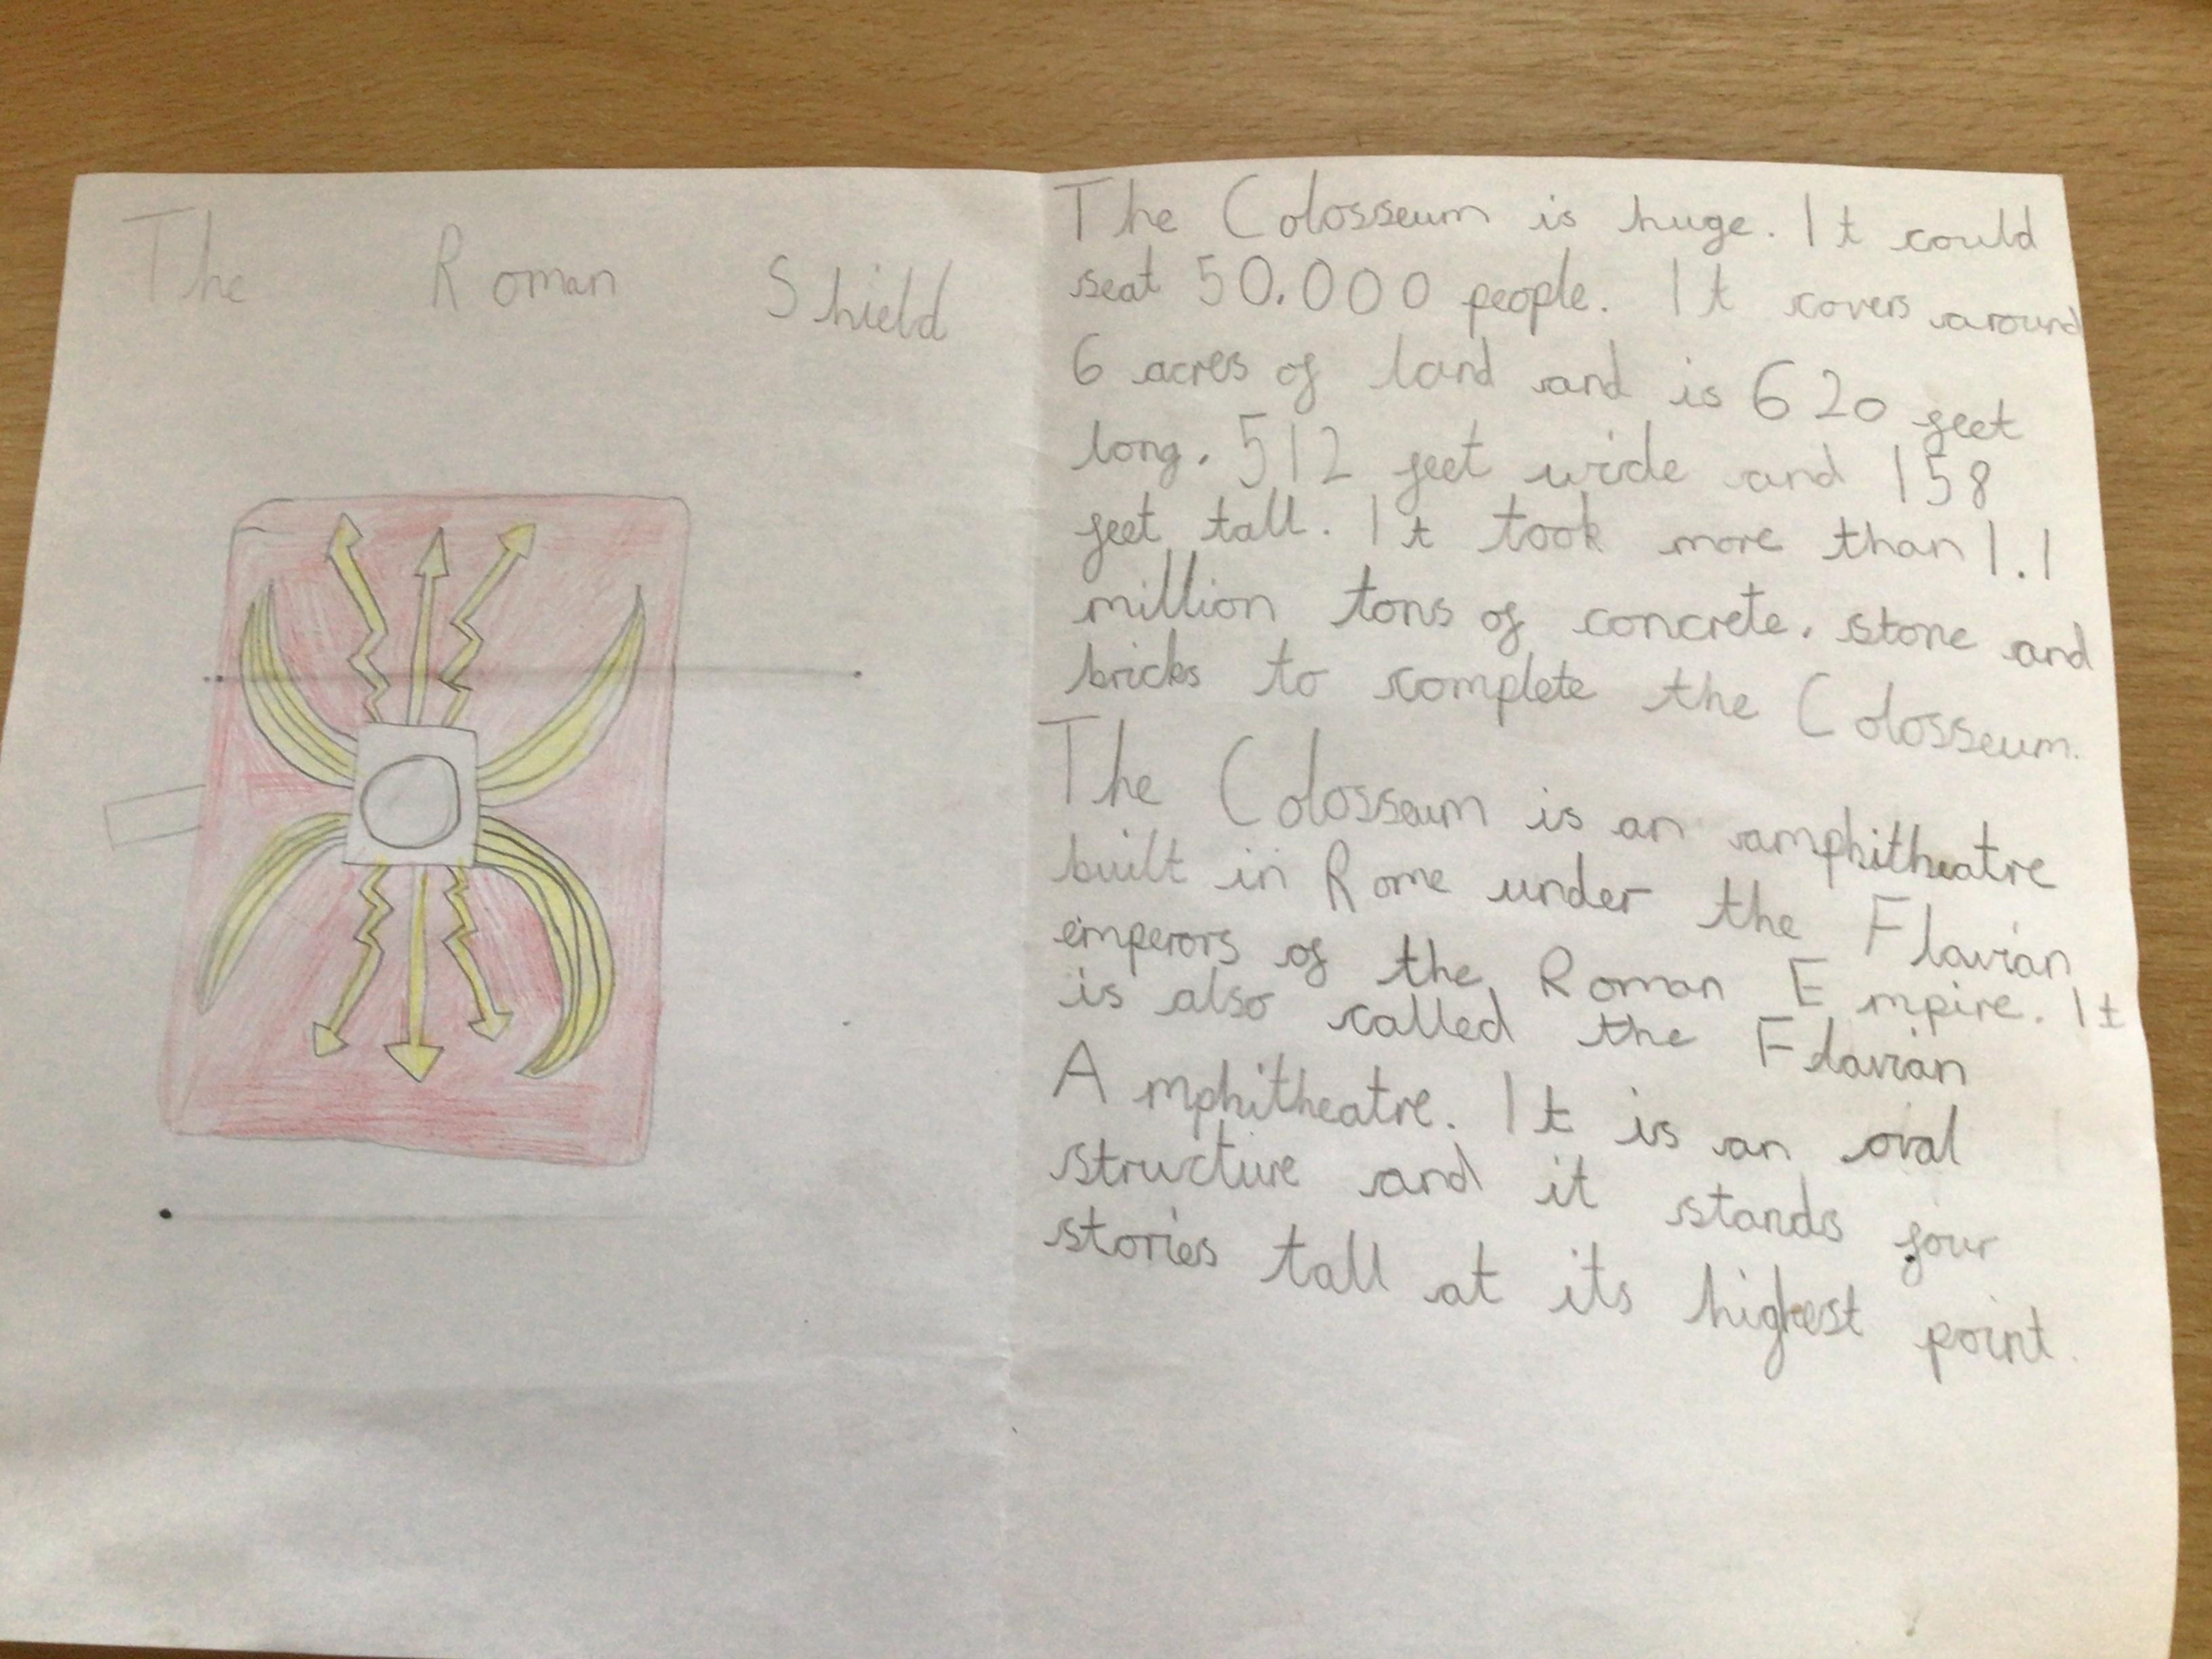 The Roman Shield
The Colosseum is huge. It could
seat 50,000 people. It covers around
6 acres of land and is 620 feet
long, 512 feet wide and 158
feet tall. It took more than 1.1
million tons of concrete, stone and
bricks to complete the Colosseum.
The Colosseum is an amphitheatre
built in Rome under the Flavian
emperors of the Roman Empire. It
is also called the Flavian
Amphitheatre. It is an oval
structure and it stands four
stories tall at its highest point.